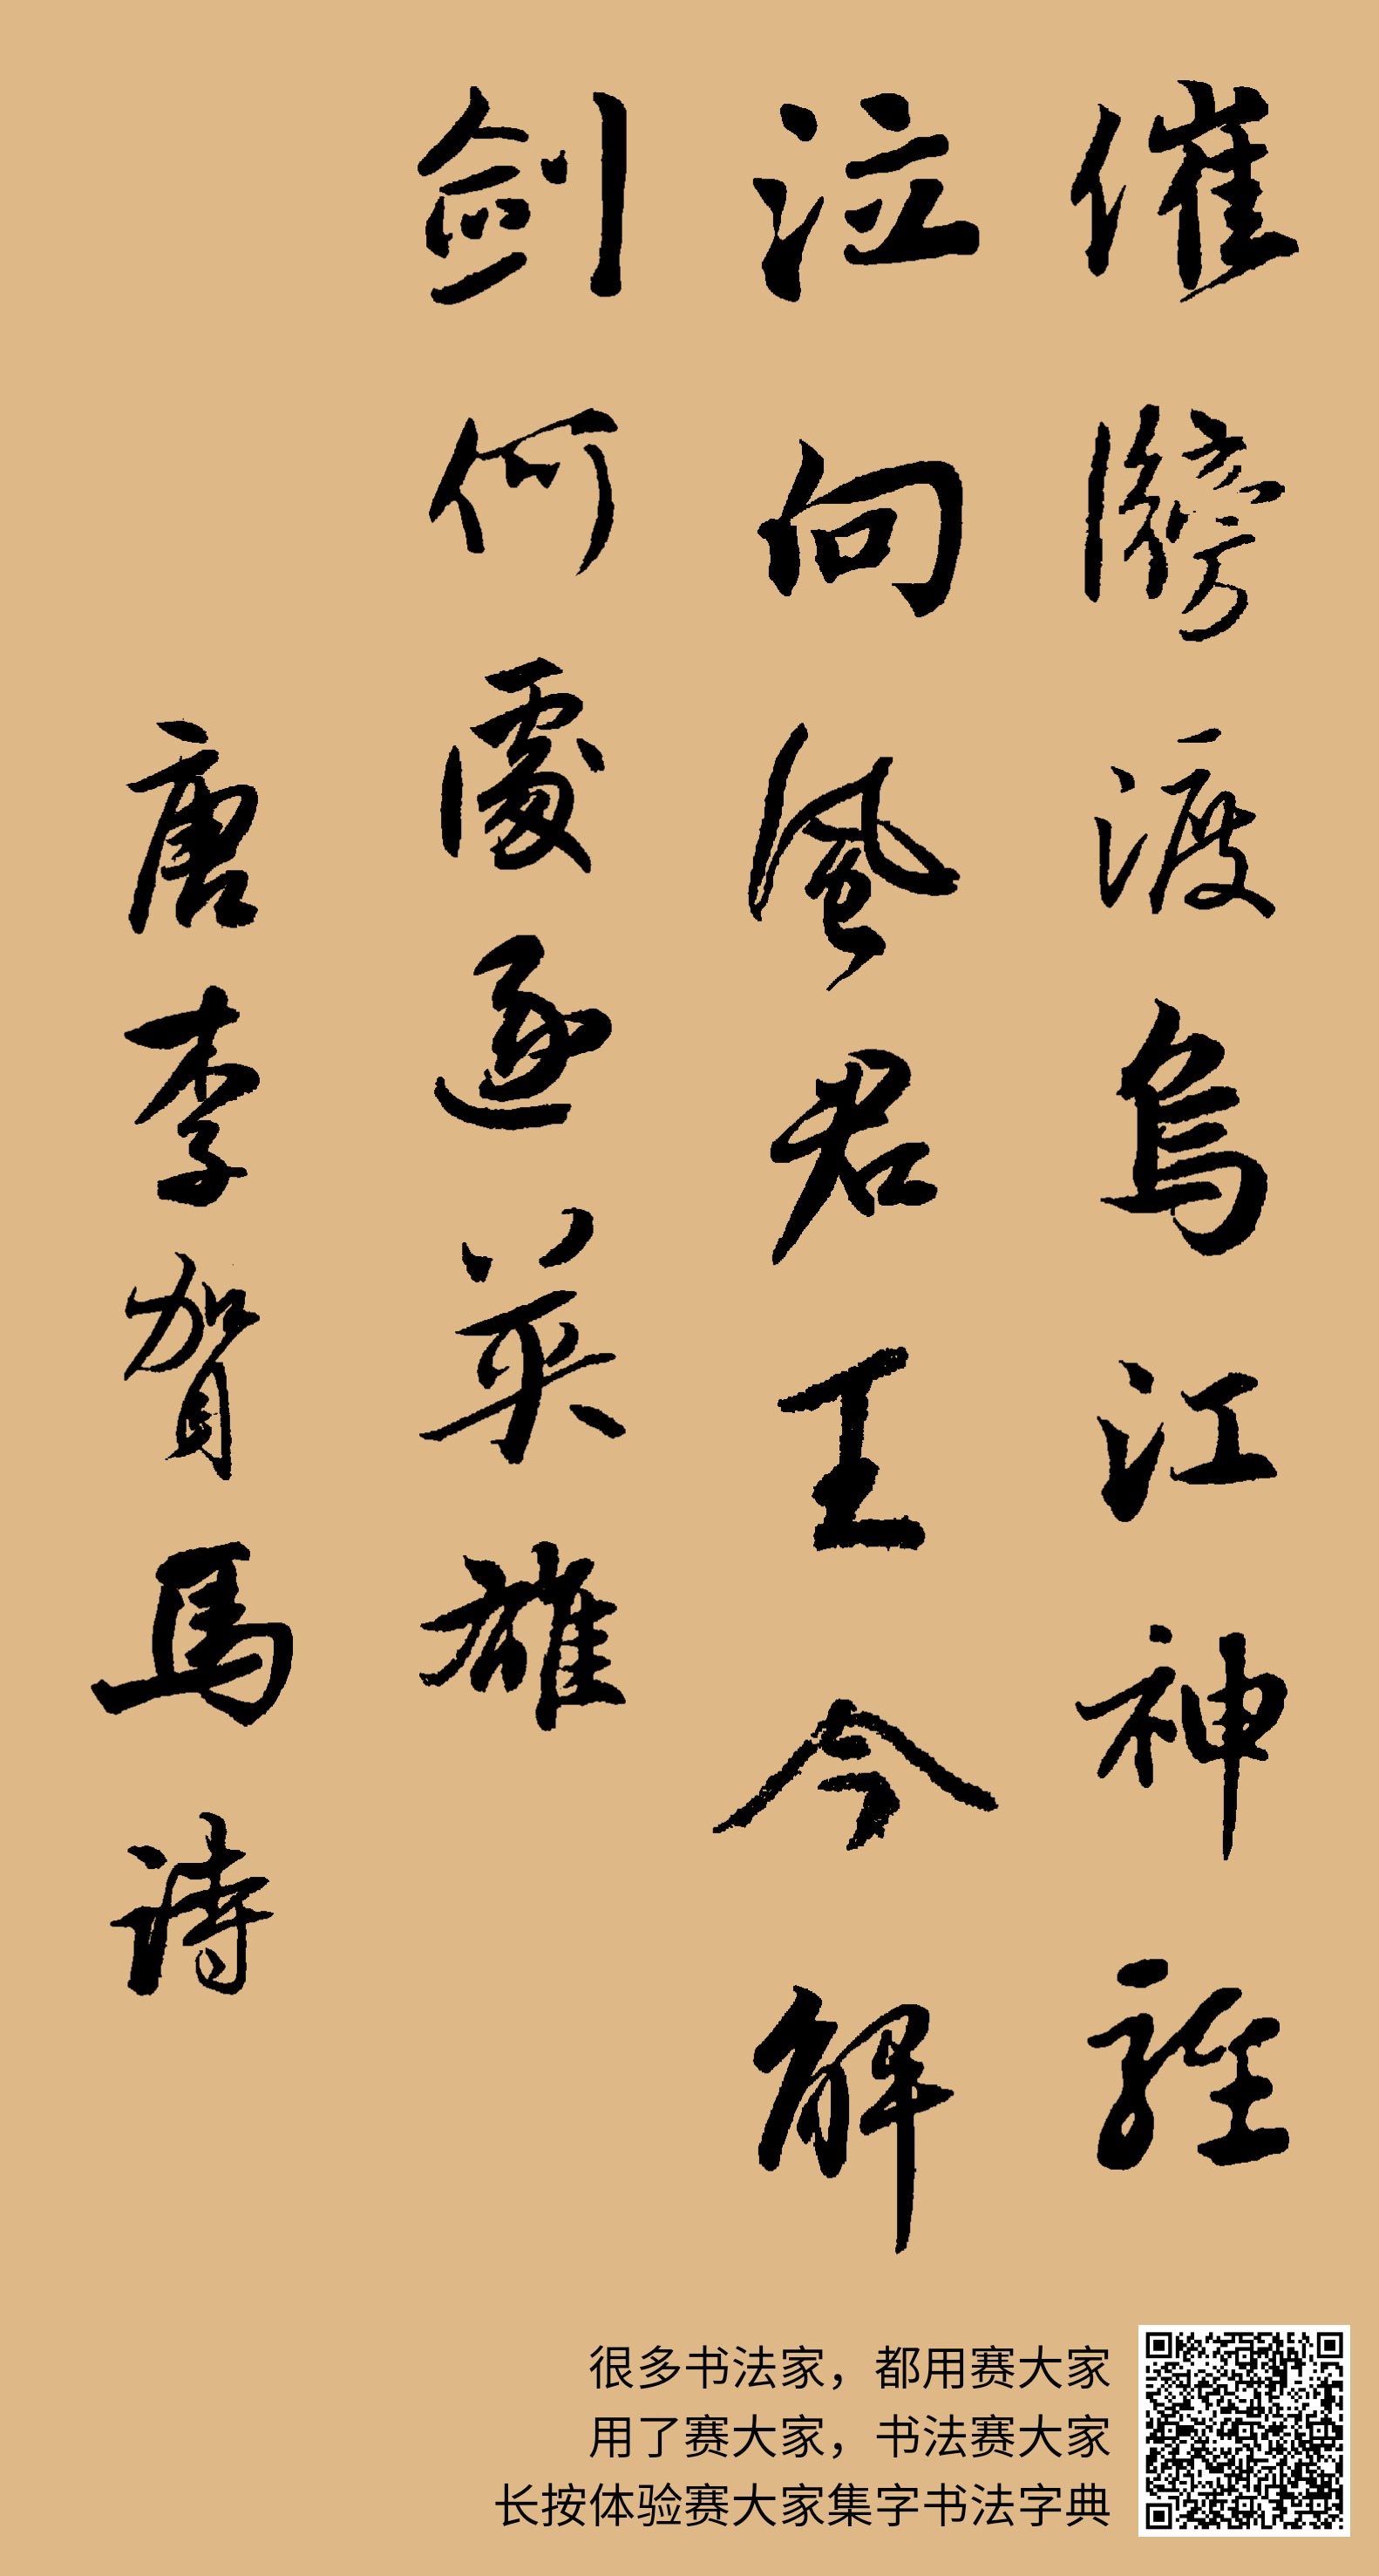 催牓渡烏江神騅
泣向風君王今解
劍何處逐英雄
唐李賀馬詩
很多书法家，都用赛大家
用了赛大家，书法赛大家
长按体验赛大家集字书法字典